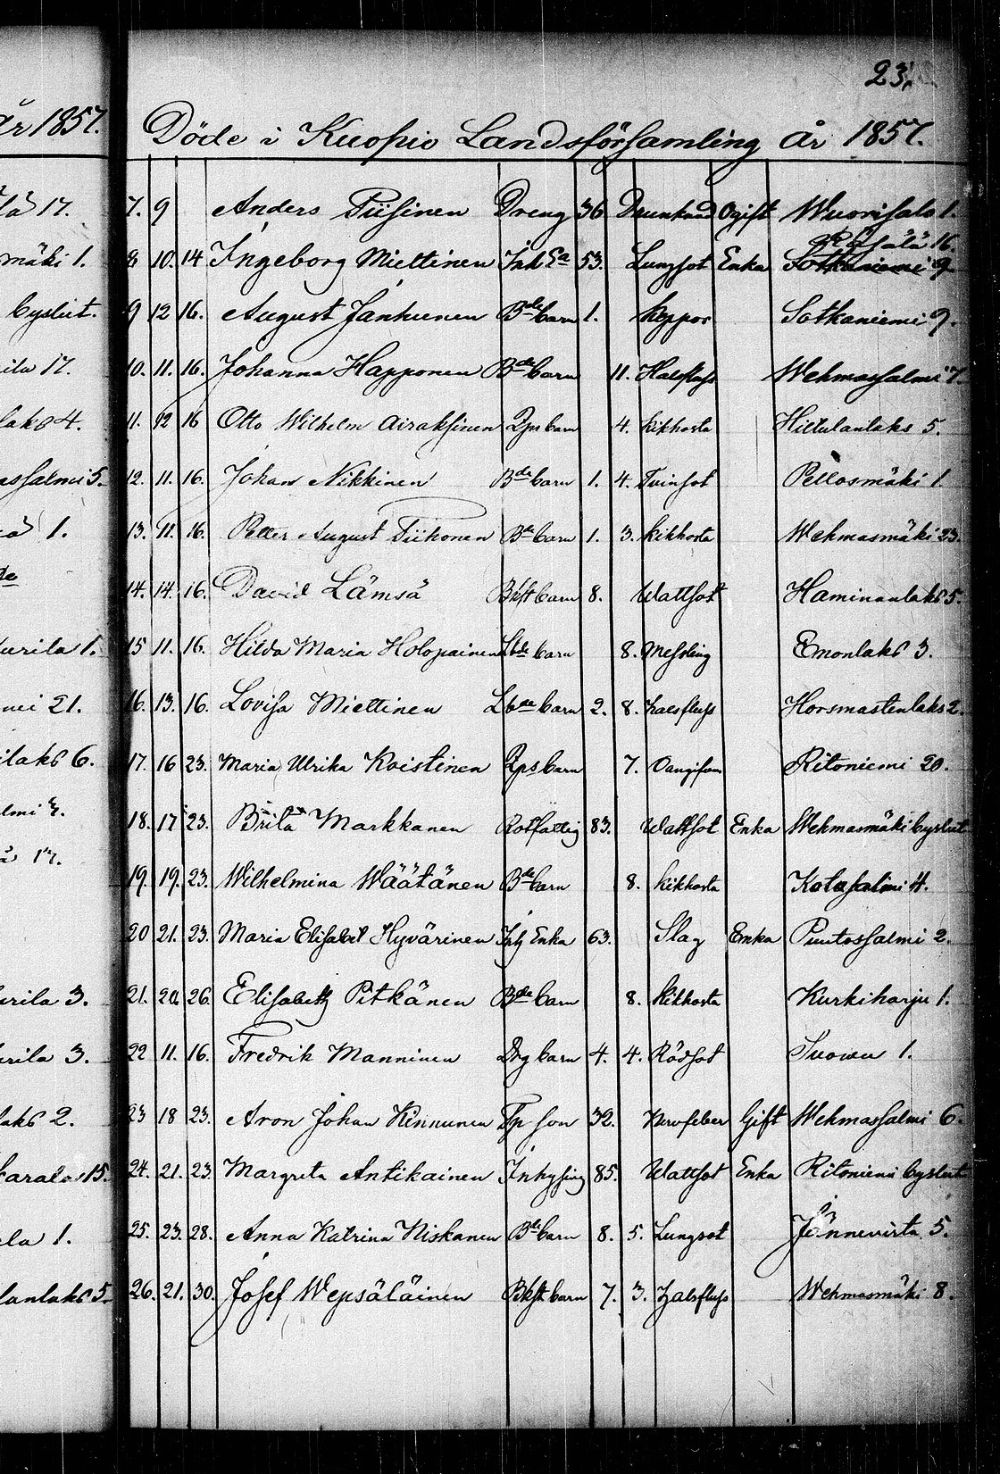 23.
år 1857.
Döde i Kuopio Landsförsamling år 1857.
la 17.
7. 9 Anders Tiisinen Dreng 36 Drunknad Ogift Wuorisalo 1.
Räsälä 16.
mäki 1.
8 10. 14 Ingeborg Miettinen Inh Ea 53. Lungsot Enka Sotkaniemi 9
byslut.
9 12 16. August Janhunen Bde barn 1. koppor Sotkaniemi 9.
17.
10. 11. 16. Johanna Happonen Bde barn 11. Halsfluss Wehmassalmi 7.
laks 4.
11. 12 16 Otto Wilhelm Airaksinen barn 4. kikhosta Hiltulanlaks 5.
assalmi 5.
12. 11. 16. Johan Nikkinen Bde barn 1. 4. Tvinsot Pellosmäki 1.
1.
13. 11. 16. Petter August Tiihonen Bde barn 1. 3. kikhosta Wehmasmäki 23.
14. 14. 16. David Lämsä barn 8. Wattsot Haminanlaks 5.
urila 1.
15 11. 16. Hilda Maria Holopainen barn 8. Messling Emonlaks 3.
mi 21.
16. 13. 16. Lovisa Miettinen barn 2. 8. halsfluss Horsmastenlaks 2.
ilaks 6.
17. 16 23. Maria Ulrika Koistinen barn 7. Ritoniemi 20.
almi
18. 17 23. Brita Markkanen Rotfattig 83. Wattsot Enka Wehmasmäki byslut
17.
19. 19. 23. Wilhelmina Wäätänen Bde barn 8. kikhosta Kotasalmi 4.
20 21. 23. Maria Elisabet Hyvärinen Enka 63. Slag Enka Puutossalmi 2.
urila 3.
21. 20. 26. Elisabeth Pitkänen Bde barn 8. kikhosta Kurkiharju 1.
urila 3.
22 11. 16. Fredrik Manninen Drg barn 4. 4. Rödsot Suowu 1.
laks 2.
23 18 23. Aron Johan Kinnunen Tp son 32. Nervfeber Gift Wehmassalmi 6.
karala 15.
24. 21. 23. Margreta Antikainen Inhysing 85. Wattsot Enka Ritoniemi byslut
ela 1.
25. 23. 28. Anna Katrina Niskanen Bde barn 8. 5. Lungsot Jännevirta 5.
lanlaks 5.
26. 21. 30. Josef Wepsäläinen barn 7. 3. halsfluss Wehmasmäki 8.